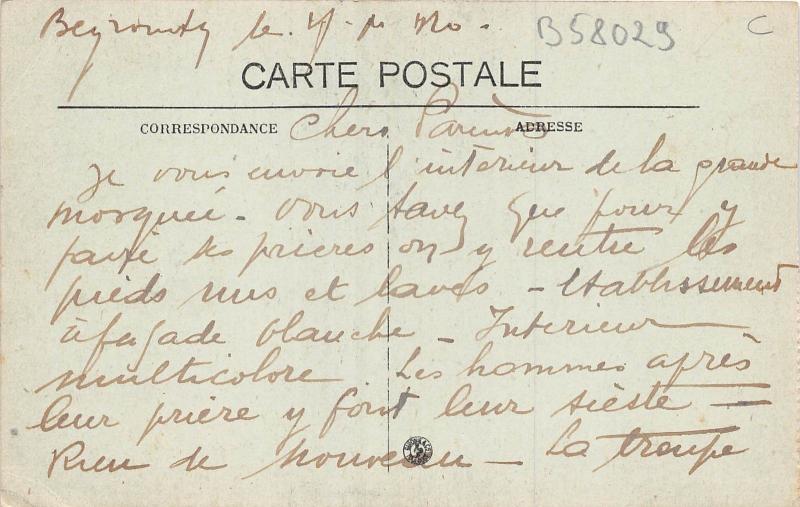 Beyrouth le
B58029
C
CARTE POSTALE
CORRESPONDANCE
ADRESSE
Chers Parents
Je vous envoie l'interieur de la grande
mosquée - Vous savez que pour y
faire ses prieres on y rentre les
pieds nus et lavés - Etablissement
à façade blanche - Interieur
multicolore. Les hommes après
leur prière y font leur sièste =
Rien de nouveau - La troupe